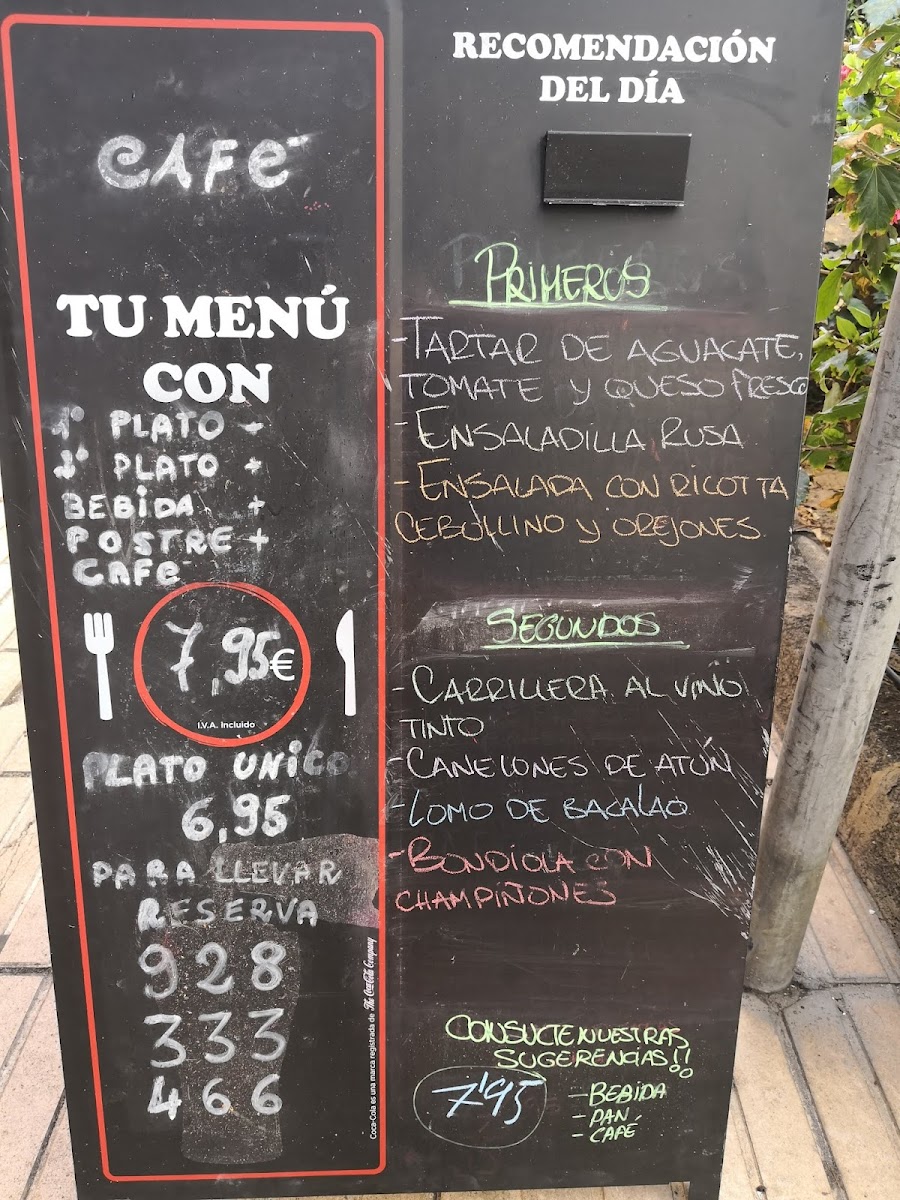 CAFÉ
TU MENÚ
CON
1º PLATO +
2º PLATO +
BEBIDA +
POSTRE +
CAFÉ
7,95€
I.V.A. Incluido
PLATO UNICO
6,95
PARA LLEVAR
RESERVA
928
333
466
Coca-Cola es una marca registrada de The Coca-Cola Company
RECOMENDACIÓN
DEL DÍA
PRIMEROS
-TARTAR DE AGUACATE,
TOMATE Y QUESO FRESCO
-ENSALADILLA RUSA
-ENSALADA CON RICOTTA
CEBOLLINO Y OREJONES
SEGUNDOS
-CARRILLERA AL VINO
TINTO
-CANELONES DE ATÚN
-LOMO DE BACALAO
-BONDIOLA CON
CHAMPIÑONES
CONSULTE NUESTRAS
SUGERENCIAS!!
7'95
-BEBIDA
-PAN
-CAFÉ